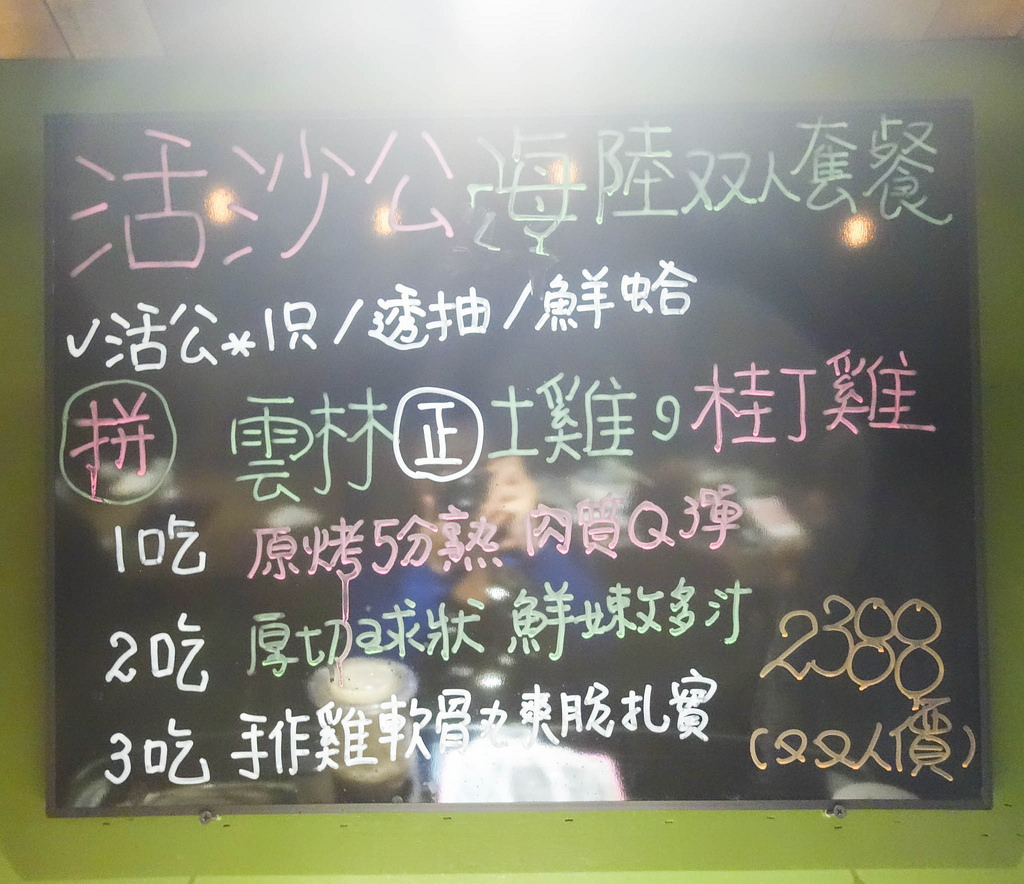 活沙公海陸双人套餐
✓活公*1只/透抽/鮮蛤
拼 雲林正土雞,桂丁雞
1吃 原烤5分熟 肉質Q彈
2吃 厚切球狀 鮮嫩多汁
3吃 手作雞軟骨丸爽脆扎實
2388
(双人價)